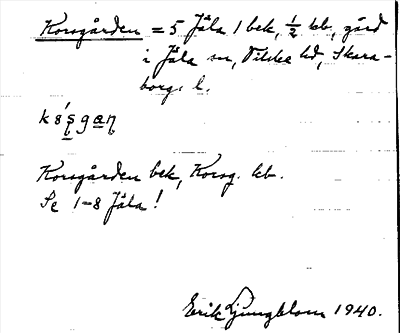 Korsgården = 5 Jäla 1 bek, ½ kb, gård
i Jäla sn, Vilske hd, Skara-
borgs l.
Korsgården bek, Korsg. kb.
Se 1-8 Jäla!
Erik Ljungblom 1940.